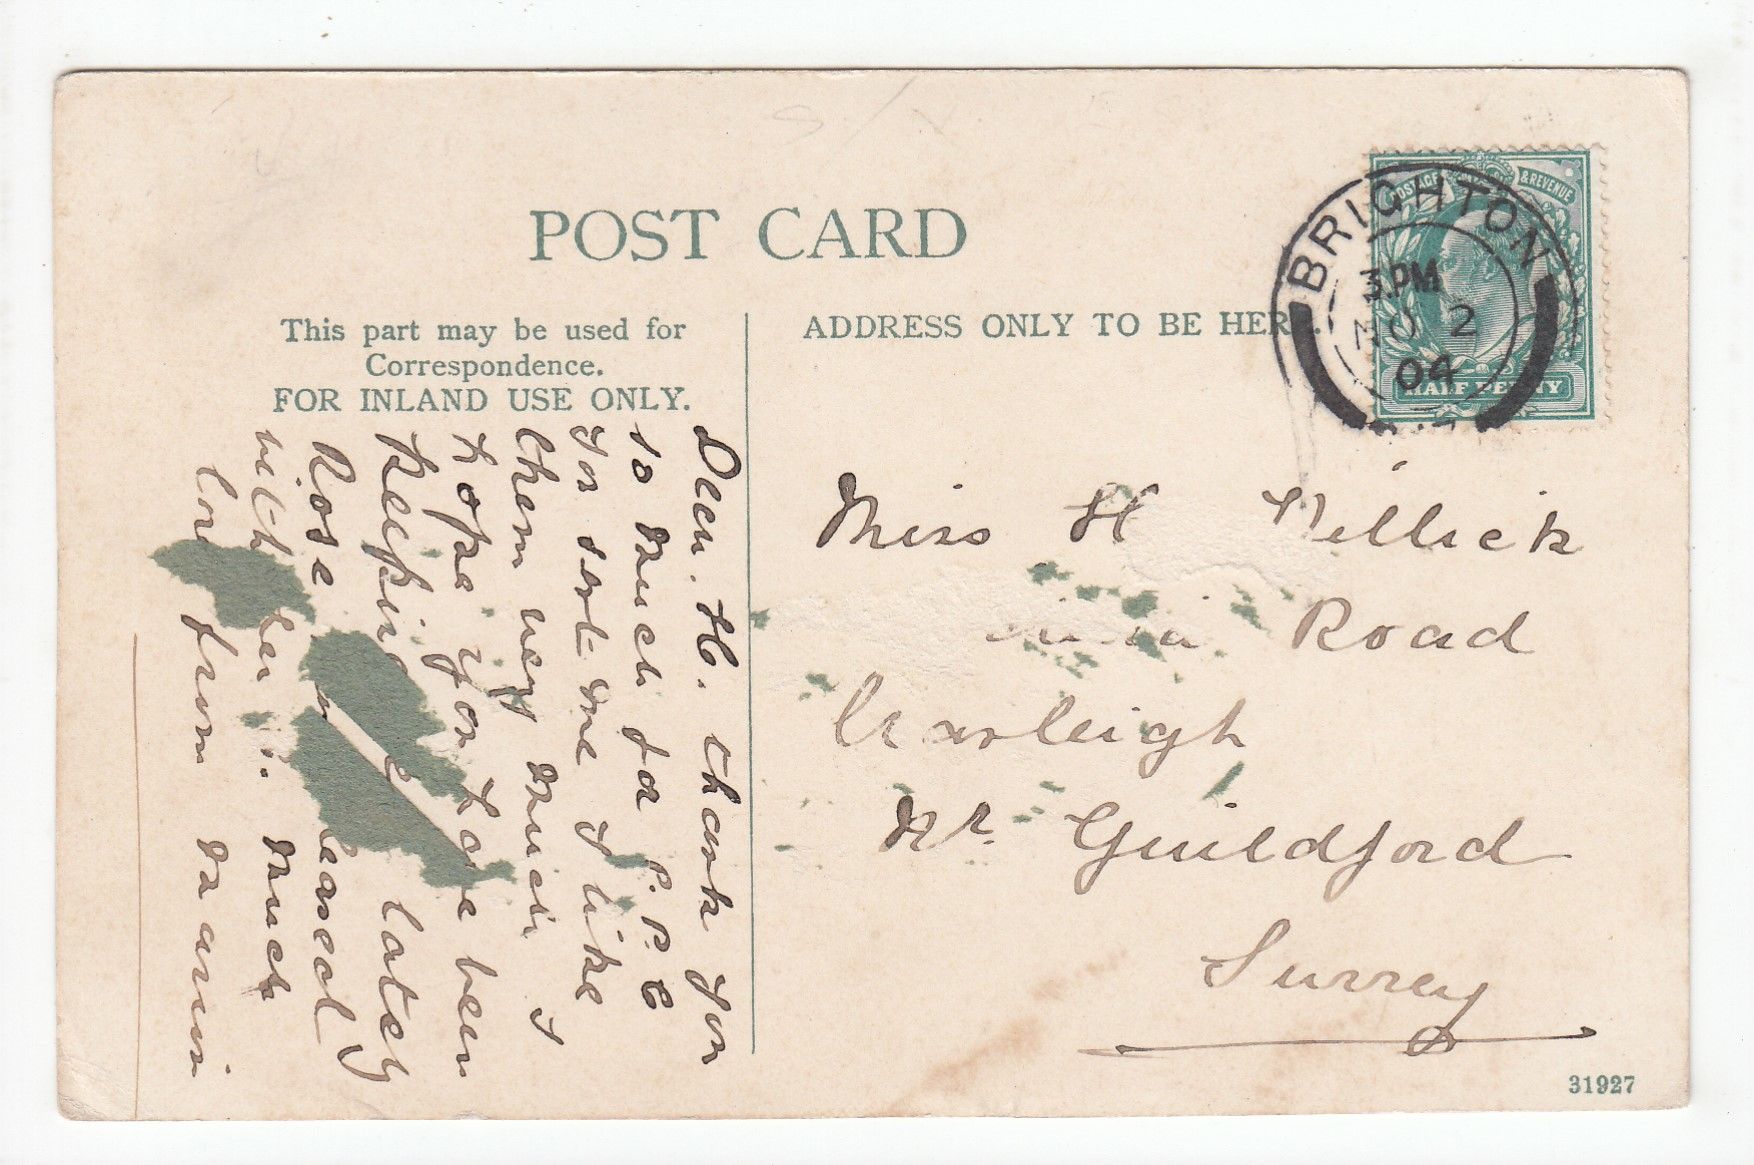 POST CARD
This part may be used for
Correspondence.
FOR INLAND USE ONLY.
ADDRESS ONLY TO BE HER
POSTAGE & REVENUE
HALF PENNY
BRIGHTON
3.PM
NO 2
04
Dear. H. thank you
so much for P.P.C
you sent me I like
them very much I
hope you have been
keeping lately
Rose
with her. Much
love from
Miss H
Road
Cranleigh
Nr. Guildford
Surrey
31927